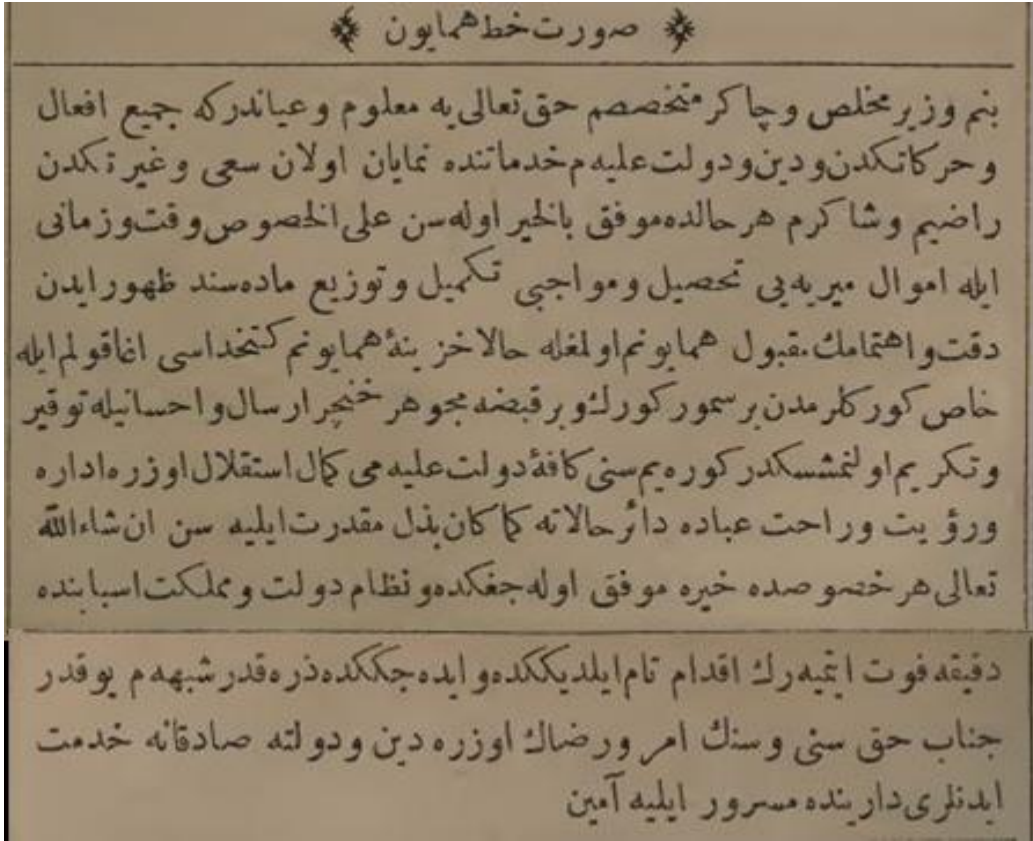 صورت خط همایون
بنم وزیر مخلص و چاکر متخصصم حق تعالی یه معلوم و عیاندر که جمیع افعال
و حرکاتكدن و دین و دولت علیه م خدماتنده نمایان اولان سعی و غیرتكدن
راضیم و شاکرم هر حالده موفق بالخیر اوله سن علی الخصوص وقت و زمانی
ایله اموال میریه یی تحصیل و مواجبی تکمیل و توزیع ماده سند ظهور ایدن
دقت و اهتمامك مقبول همایونم اولمغله حالا خزینۀ همایونم کتخداسی اغا قولم ایله
خاص کورکلرمدن بر سمور کورك و بر قبضه مجوهر خنچر ارسال و احسانیله توقیر
و تکریم اولنمشسکدر کوره یم سنی کافۀ دولت علیه می کمال استقلال اوزره اداره
و رؤیت و راحت عباده دائر حالاته کما کان بذل مقدرت ایلیه سن ان شاء الله
تعالی هر خصوصده خیره موفق اوله جغکده و نظام دولت و مملکت اسبابنده
دقیقه فوت ایتمیه رك اقدام تام ایلدیککده و ایده جککده ذره قدر شبهه م یوقدر
جناب حق سنی و سنك امر و رضاك اوزره دین و دولته صادقانه خدمت
ایدنلری دارینده مسرور ایلیه آمین